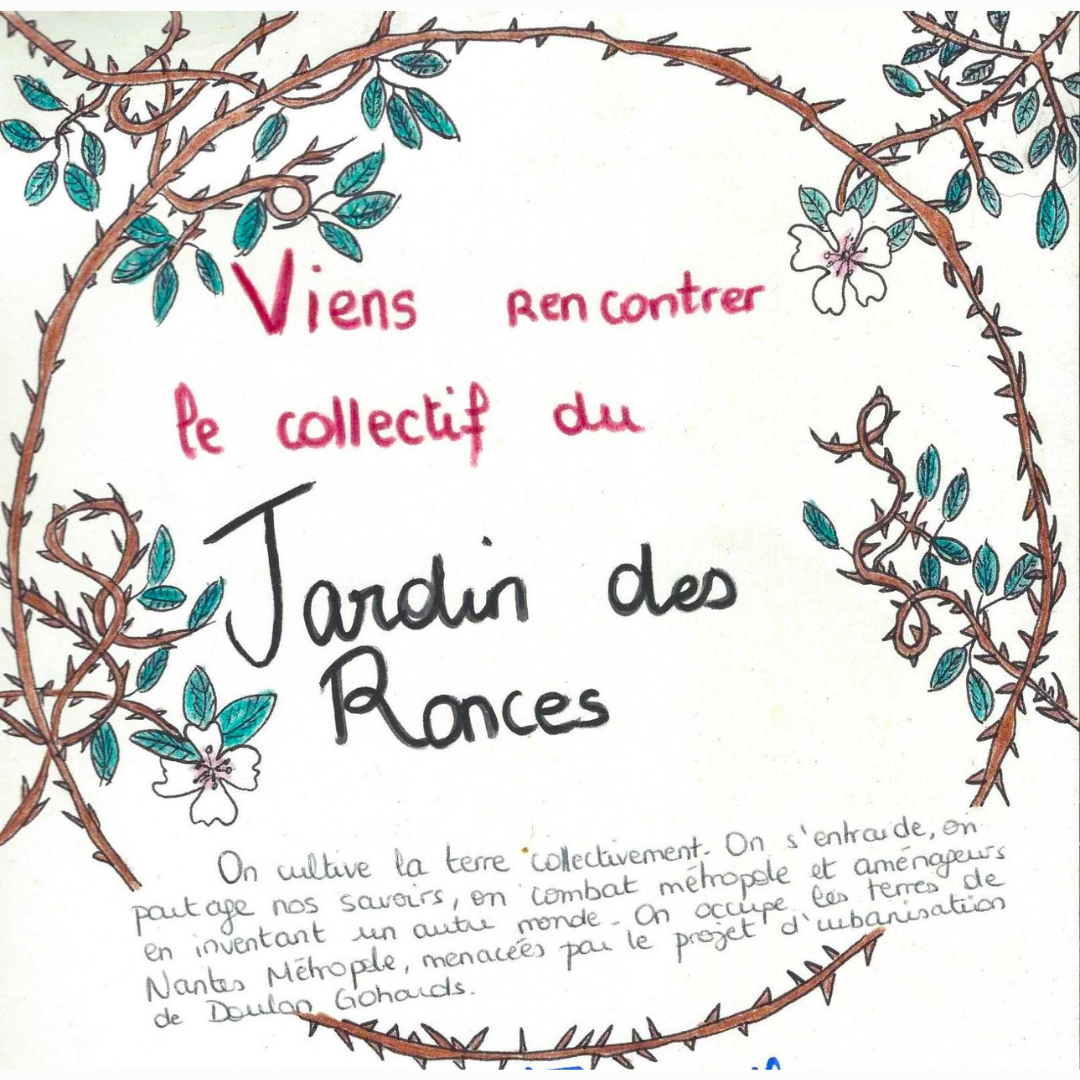 Viens Rencontrer
le collectif du
Jardin des
Ronces
On cultive la terre collectivement. On s'entraide, on
partage nos savoirs, on combat métropole et aménageurs
en inventant un autre monde - On occupe les terres de
Nantes Métropole, menaceés par le projet d'urbanisation
de Doulon Gohards.